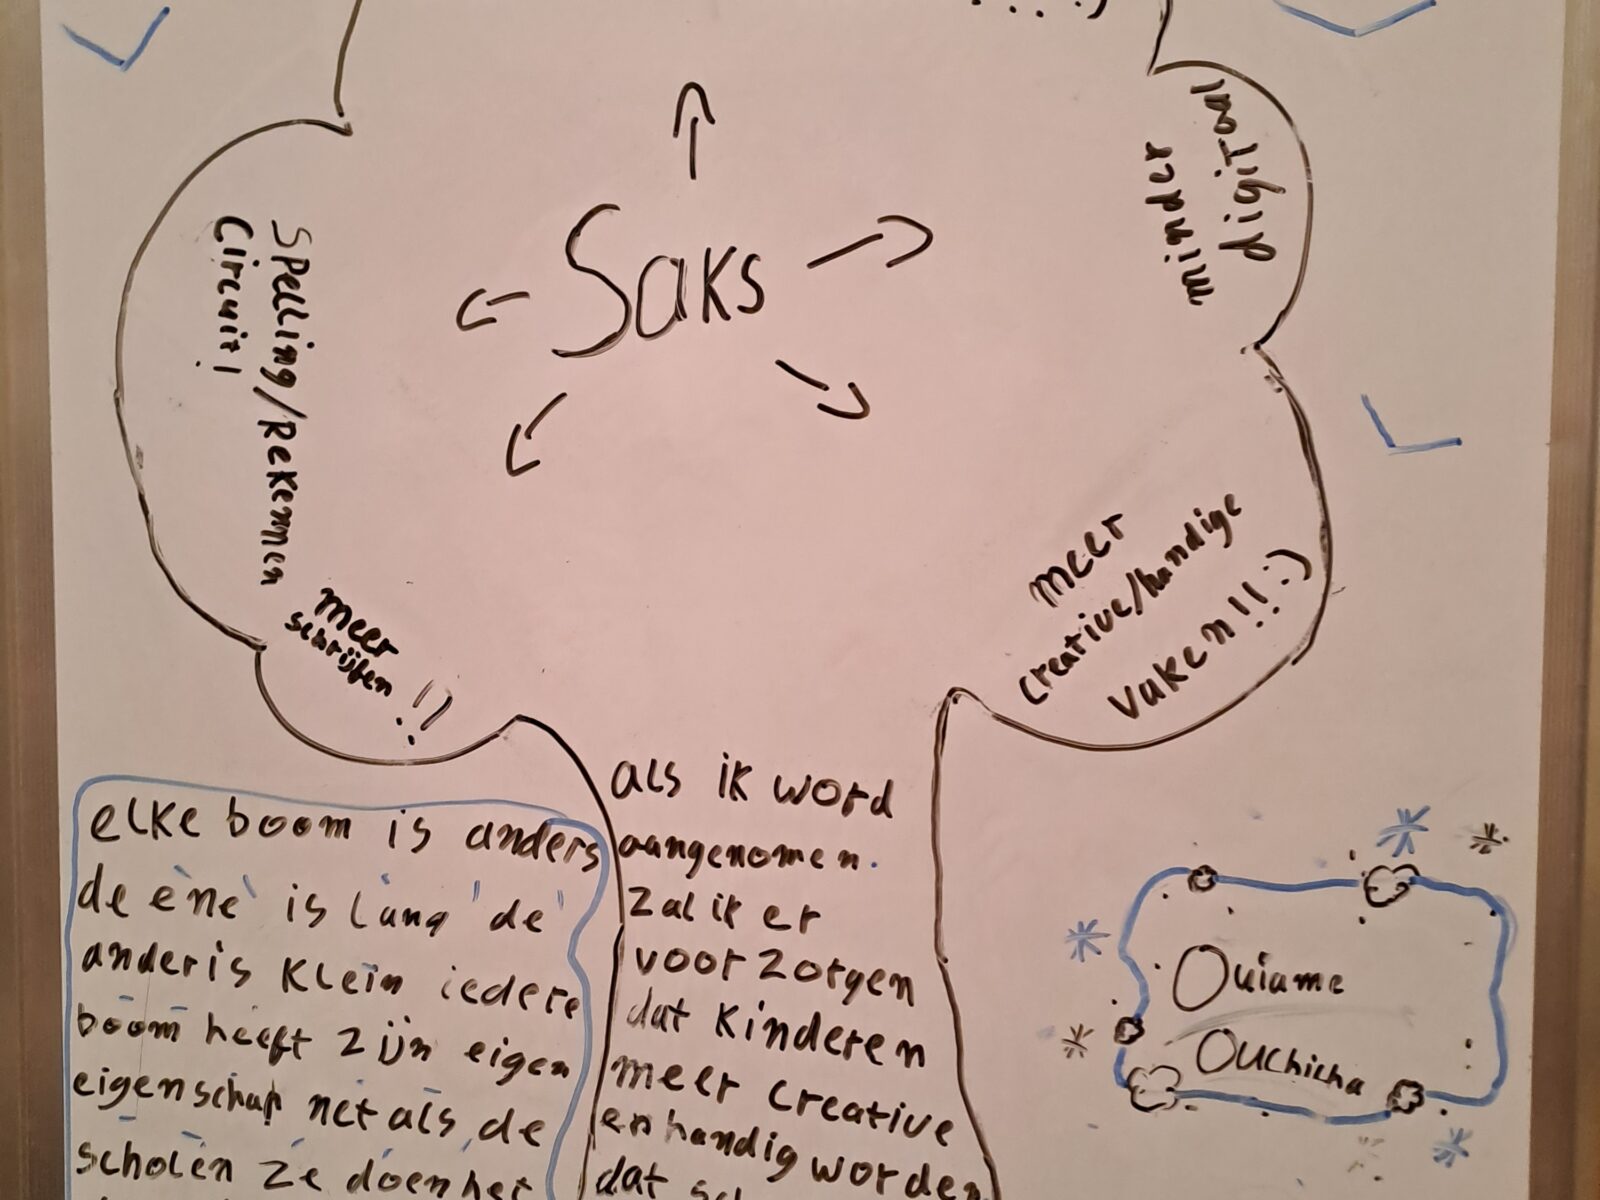 minder
digitaal
Saks
Spelling/Rekennen
Circuit!
meer
schrijfen !!
meer
creative/handige
vaken!!:)
elke boom is anders
de ene is lang de
ander is klein iedere
boom heeft zijn eigen
eigenschap net als de
scholen ze doen het
als ik word
aangenomen.
zal ik er
voor zorgen
dat kinderen
meer creative
en handig worden
dat
Ouiame
Ouchicha